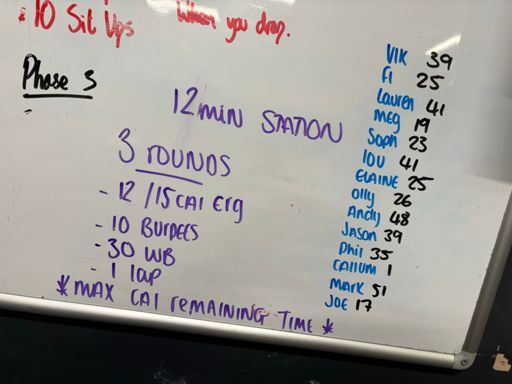 - 10 Sit Ups
When you drop.
Phase 3
12min STATION
3 ROUNDS
- 12/15 CAl Erg
- 10 BURPEES
- 30 WB
- 1 lap
* MAX CAl remaining Time *
VIK 39
Fi 25
Lauren 41
Meg 19
Soph 23
lou 41
ELAINE 25
Olly 26
Andy 48
Jason 39
Phil 35
CAllUM 1
Mark 51
JOE 17